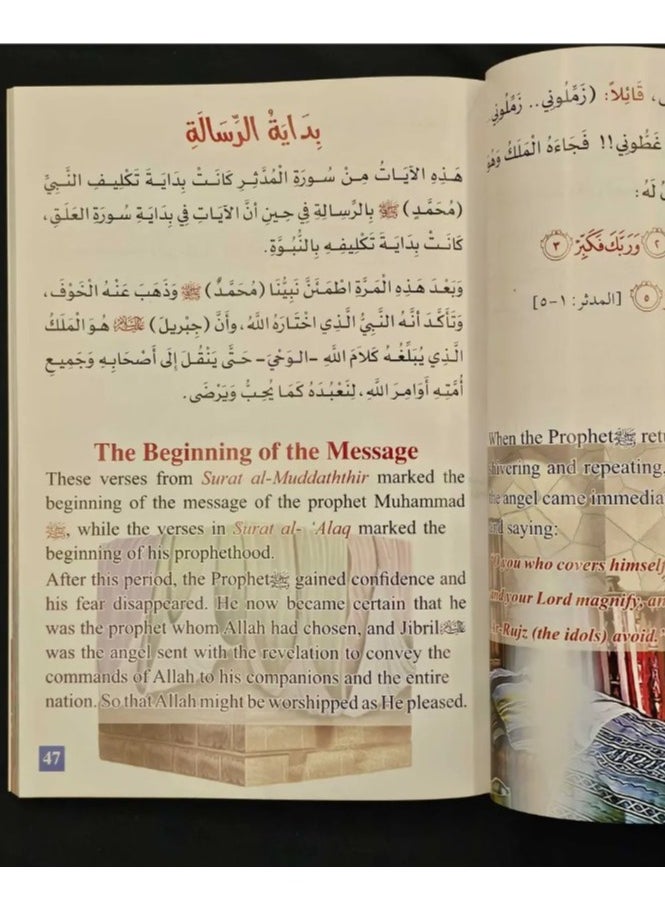 بِدَايَةُ الرِّسَالَةِ
هَذِهِ الآيَاتُ مِنْ سُورَةِ الْمُدَّثِّرِ كَانَتْ بِدَايَةَ تَكْلِيفِ النَّبِيِّ
(مُحَمَّدٍ) ﷺ بِالرِّسَالِةِ فِي حِينِ أَنَّ الآيَاتِ فِي بِدَايَةِ سُورَةِ العَلَقِ،
كَانَتْ بِدَايَةَ تَكْلِيفِهِ بِالنُّبُوَّةِ.
وَبَعْدَ هَذِهِ الْمَرَّةِ اطْمَئَنَّ نَبِيُّنَا (مُحَمَّدٌ) ﷺ وَذَهَبَ عَنْهُ الْخَوْفُ،
وَتَأَكَّدَ أَنَّهُ النَّبِيُّ الَّذِي اخْتَارَهُ اللَّهُ، وَأَنَّ (جِبْرِيلَ) هُوَ الْمَلَكُ
الَّذِي يُبَلِّغُهُ كَلَامَ اللَّهِ -الْوَحْيَ- حَتَّى يَنْقُلَ إِلَى أَصْحَابِهِ وَجَمِيعِ
أُمَّتِهِ أَوَامِرَ اللَّهِ، لِنَعْبُدَهُ كَمَا يُحِبُّ وَيَرْضَى.
The Beginning of the Message
These verses from Surat al-Muddaththir marked the
beginning of the message of the prophet Muhammad
ﷺ, while the verses in Surat al- ‘Alaq marked the
beginning of his prophethood.
After this period, the Prophet ﷺ gained confidence and
his fear disappeared. He now became certain that he
was the prophet whom Allah had chosen, and Jibril
was the angel sent with the revelation to convey the
commands of Allah to his companions and the entire
nation. So that Allah might be worshipped as He pleased.
47
، قَائِلاً: (زَمِّلُونِي.. زَمِّلُونِي
غَطُّونِي!! فَجَاءَهُ الْمَلَكُ وَهُوَ
لَهُ:
٢ وَرَبَّكَ فَكَبِّرْ ٣
٥ [المدثر: ١-٥]
When the Prophet ﷺ
shivering and repeating,
the angel came
and saying:
"O you who covers himself
and your Lord magnify,
Ar-Rujz (the idols) avoid."